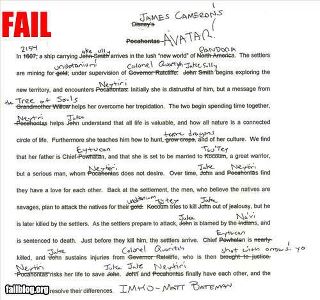 FAIL
JAMES CAMERON'S
Disney's
AVATAR
Pocahontas
2154 Jake Sully PANDORA
In 1607, a ship carrying John Smith arrives in the lush "new world" of North America. The settlers
unobtanium Colonel Quaritch Jake Sully
are mining for gold, under supervision of Governor Ratcliffe. John Smith begins exploring the
Neytiri
new territory, and encounters Pocahontas. Initially she is distrustful of him, but a message from
the Tree of Souls
Grandmother Willow helps her overcome her trepidation. The two begin spending time together,
Neytiri Jake
Pocahontas helps John understand that all life is valuable, and how all nature is a connected
tame dragons
circle of life. Furthermore she teaches him how to hunt, grow crops, and of her culture. We find
Eytucan Tsu'Tey
that her father is Chief Powhatan, and that she is set to be married to Kocoum, a great warrior,
Neytiri Jake Neytiri
but a serious man, whom Pocahontas does not desire. Over time, John and Pocahontas find
they have a love for each other. Back at the settlement, the men, who believe the natives are
unobtanium Tsu'tey Jake
savages, plan to attack the natives for their gold. Kocoum tries to kill John out of jealousy, but he
Jake Na'vi
is later killed by the settlers. As the settlers prepare to attack, John is blamed by the Indians, and
Eytucan
is sentenced to death. Just before they kill him, the settlers arrive. Chief Powhatan is nearly
Jake Colonel Quaritch shot with arrows. yo
killed, and John sustains injuries from Governor Ratcliffe, who is then brought to justice.
Neytiri Jake Jake Neytiri
Pocahontas risks her life to save John. John and Pocahontas finally have each other, and the
resolve their differences. IMHO-MATT BATEMAN
failblog.org